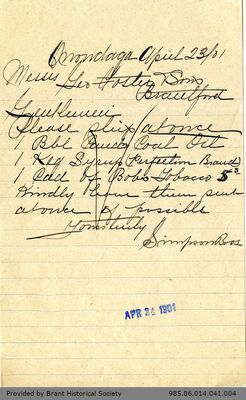 Onondaga April 23/01
Messrs Geo Foster & Sons
Brantford
Gentlemen
Please ship at once
1 Bbl Coal Oil
1 Keg Syrup Perfection Brand
1 Cad of Bobs Tobacco 5
Kindly have them sent
at once if possible
Yours truly
Simpson Bros
APR 24 1901
Provided by Brant Historical Society
985.86.014.041.004